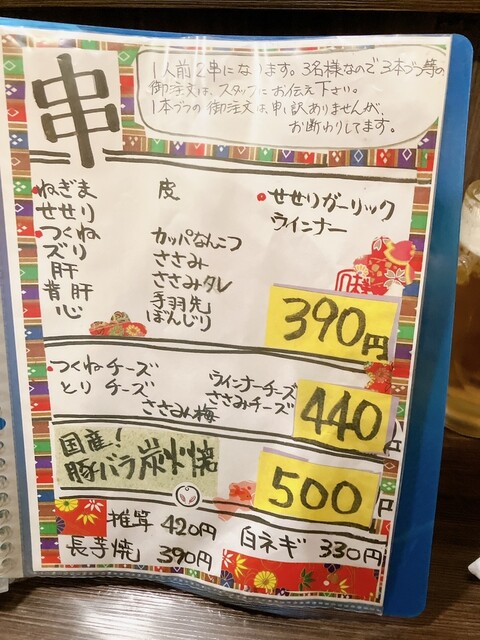 串
1人前2串になります。3名様なので3本づつ等の
御注文は、スタッフにお伝え下さい。
1本づつの御注文は申し訳ありませんが、
お断わりしてます。
ねぎま
せせり
つくね
ズリ
肝
背肝
心
皮
カッパなんこつ
ささみ
ささみタレ
手羽先
ぼんじり
せせりガーリック
ウインナー
390円
つくねチーズ
とりチーズ
ささみ梅
ウインナーチーズ
ささみチーズ
440円
国産!
豚バラ炭火焼
500円
椎茸 420円
白ネギ 330円
長芋焼 390円